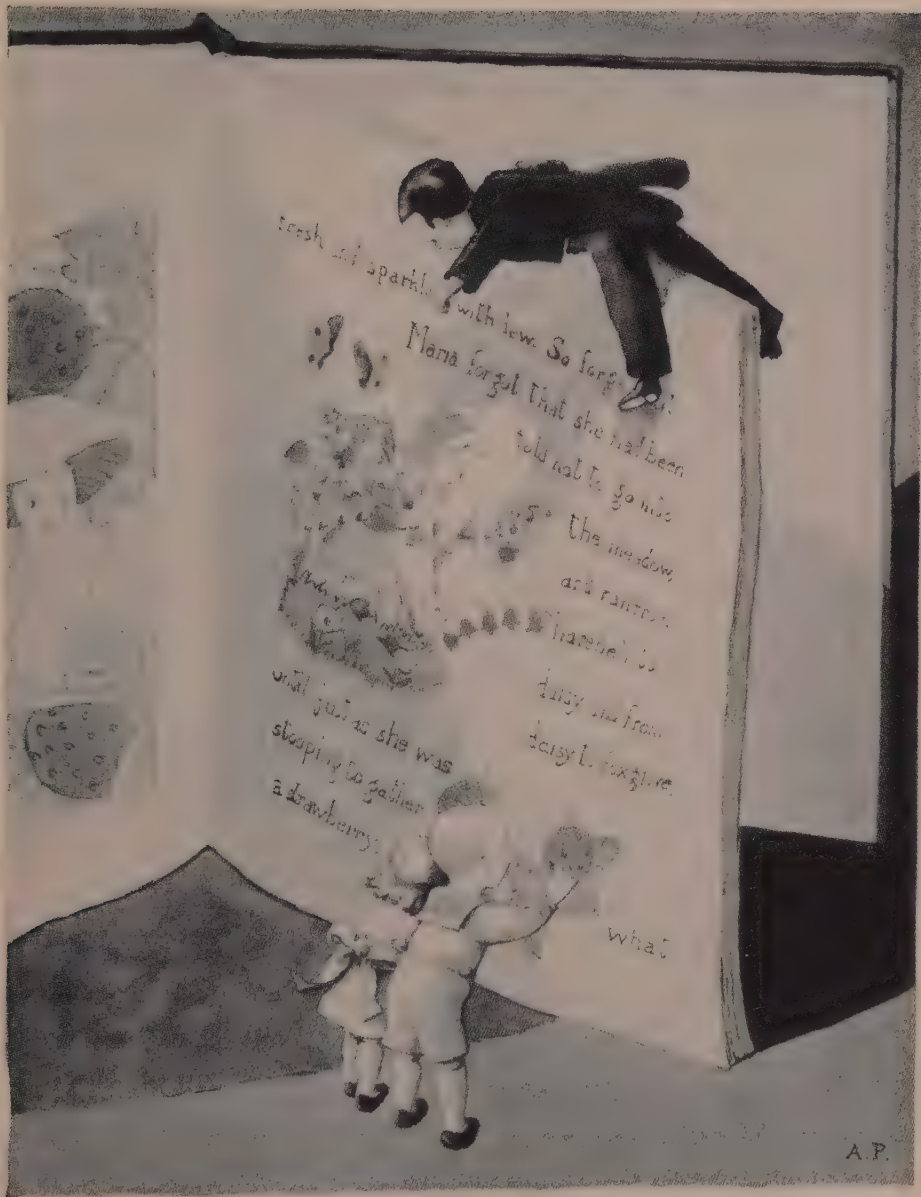 fresh and sparkling with dew. So forgetful
Mama forgot that she had been
told not to go into
the meadow,
and ran from
harebell to
daisy and from
daisy to foxglove,
until just as she was
stooping to gather
a strawberry,
what
A.P.